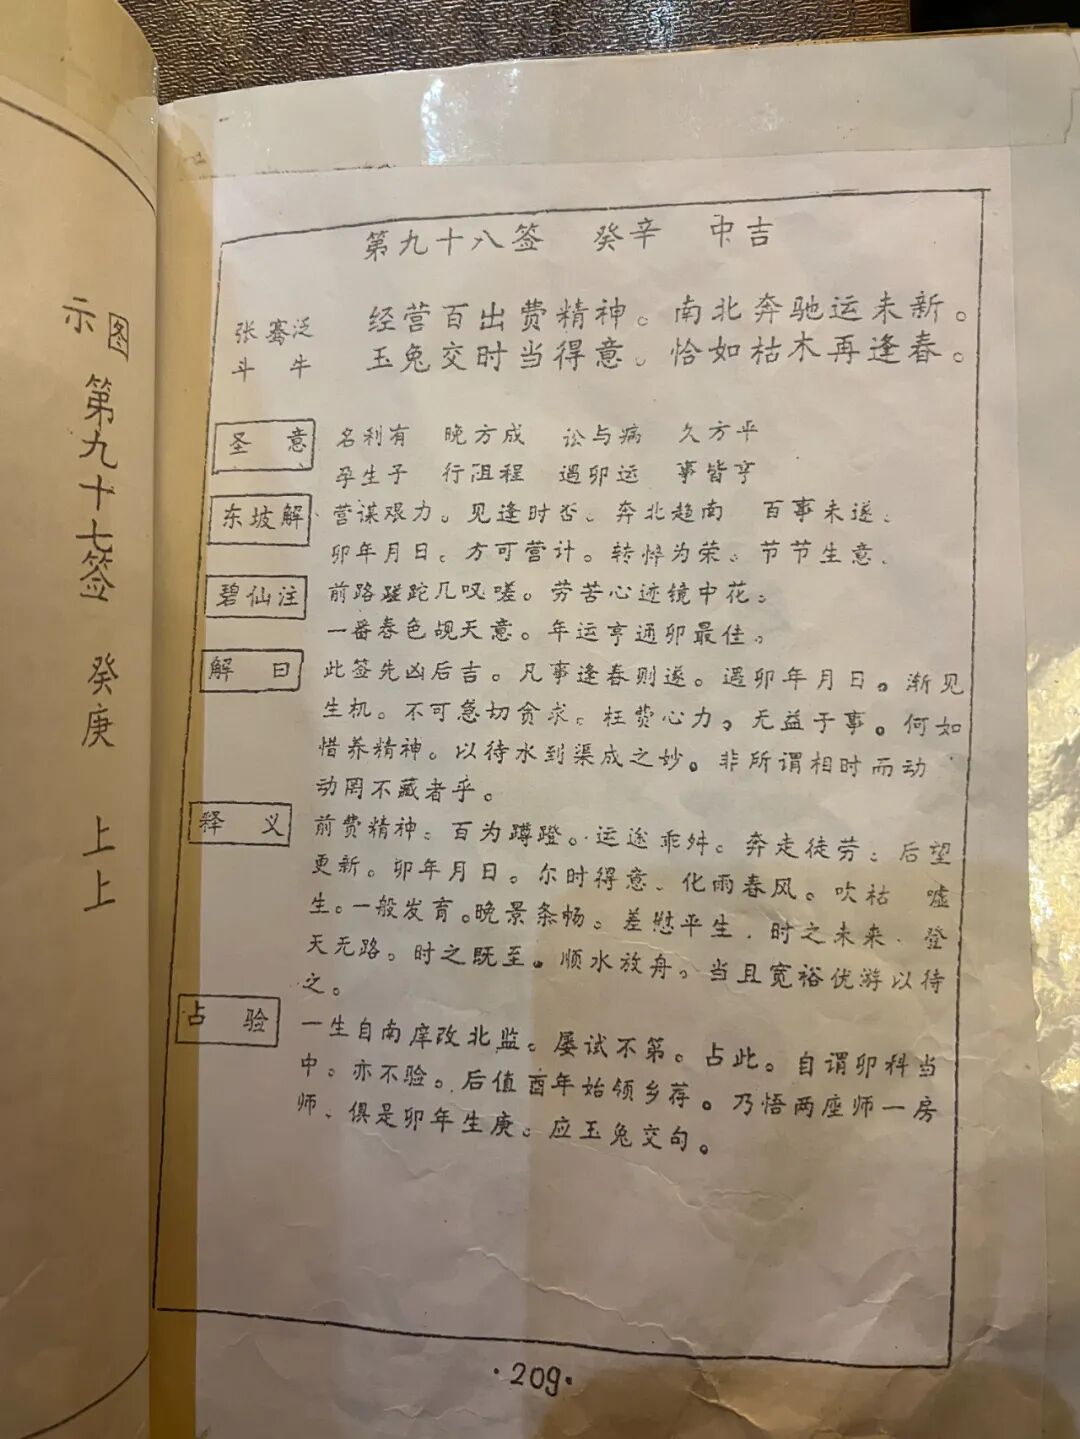 示图 第九十七签 癸庚 上上
第九十八签 癸辛 中吉
张骞泛
斗牛
经营百出费精神。南北奔驰运未新。
玉兔交时当得意。恰如枯木再逢春。
圣意 名利有 晚方成 讼与病 久方平
孕生子 行阻程 遇卯运 事皆亨
东坡解 营谋艰力。见逢时否、奔北趋南 百事未遂、
卯年月日、方可营计。转悴为荣、节节生意、
碧仙注 前路蹉跎几叹嗟。劳苦心迹镜中花。
一番春色觇天意。年运亨通卯最佳。
解曰 此签先凶后吉。凡事逢春则遂。遇卯年月日。渐见
生机。不可急切贪求。枉费心力。无益于事。何如
惜养精神。以待水到渠成之妙。非所谓相时而动
动罔不藏者乎。
释义 前费精神。百为蹲蹬。运途乖舛。奔走徒劳。后望
更新。卯年月日。尔时得意、化雨春风。吹枯 嘘
生。一般发育。晚景条畅。差慰平生、时之未来、登
天无路。时之既至。顺水放舟。当且宽裕优游以待
之。
占验 一生自南庠改北监。屡试不第。占此。自谓卯科当
中。亦不验。后值酉年始领乡荐。乃悟两座师一房
师、俱是卯年生庚。应玉兔交句。
·209·